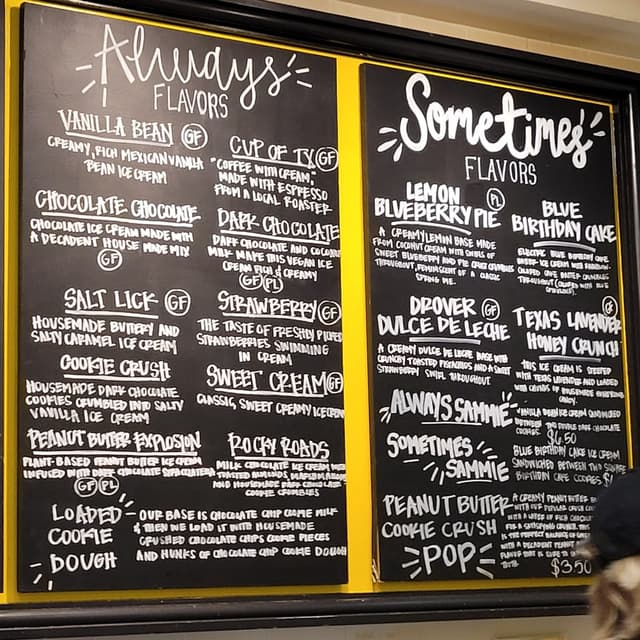 Always
FLAVORS
VANILLA BEAN GF
CREAMY, RICH MEXICAN VANILLA
BEAN ICE CREAM
CHOCOLATE CHOCOLATE
CHOCOLATE ICE CREAM MADE WITH
A DECADENT HOUSE MADE MIX
GF
SALT LICK GF
HOUSEMADE BUTTERY AND
SALTY CARAMEL ICE CREAM
COOKIE CRUSH
HOUSEMADE DARK CHOCOLATE
COOKIES CRUMBLED INTO SALTY
VANILLA ICE CREAM
PEANUT BUTTER EXPLOSION
PLANT-BASED PEANUT BUTTER ICE CREAM
INFUSED WITH DARK CHOCOLATE STRACCIATELLA
GF PL
CUP OF TX GF
"COFFEE WITH CREAM,"
MADE WITH ESPRESSO
FROM A LOCAL ROASTER
DARK CHOCOLATE
DARK CHOCOLATE AND COCONUT
MILK MAKE THIS VEGAN ICE
CREAM RICH & CREAMY
GF PL
STRAWBERRY GF
THE TASTE OF FRESHLY PICKED
STRAWBERRIES SWIMMING
IN CREAM
SWEET CREAM GF
CLASSIC, SWEET CREAMY ICE CREAM
ROCKY ROADS
MILK CHOCOLATE ICE CREAM WITH
TOASTED ALMONDS, MARSHMALLOWS
AND HOUSEMADE DARK CHOCOLATE
COOKIE CRUMBLES
LOADED
COOKIE
DOUGH
OUR BASE IS CHOCOLATE CHIP COOKIE MILK
& THEN WE LOAD IT WITH HOUSEMADE
CRUSHED CHOCOLATE CHIPS COOKIE PIECES
AND HUNKS OF CHOCOLATE CHIP COOKIE DOUGH
Sometimes
FLAVORS
LEMON PL
BLUEBERRY PIE
A CREAMY LEMON BASE MADE
FROM COCONUT CREAM WITH SWIRLS OF
SWEET BLUEBERRY AND PIE CRUST CRUMBLES
THROUGHOUT, REMINISCENT OF A CLASSIC
SPRING PIE.
DROVER GF
DULCE DE LECHE
A CREAMY DULCE DE LECHE BASE WITH
CRUNCHY TOASTED PISTACHIOS AND A SWEET
STRAWBERRY SWIRL THROUGHOUT
BLUE
BIRTHDAY CAKE
ELECTRIC BLUE BIRTHDAY CAKE
GF
TEXAS LAVENDER
HONEY CRUNCH
THIS ICE CREAM IS STEEPED
WITH TEXAS LAVENDER AND LOADED
WITH CHUNKS OF HOUSEMADE HONEYCOMB
CANDY.
ALWAYS SAMMIE
VANILLA BEAN ICE CREAM SANDWICHED
BETWEEN TWO DOUBLE DARK CHOCOLATE
COOKIES. $6.50
SOMETIMES
SAMMIE
BLUE BIRTHDAY CAKE ICE CREAM
SANDWICHED BETWEEN TWO
BIRTHDAY CAKE COOKIES
PEANUT BUTTER
COOKIE CRUSH
POP
A CREAMY PEANUT BUTTER
WITH OUR POPULAR CRUSH
WITH A LAYER OF RICH CHOCOLATE
FOR A SATISFYING CRUNCH.
IS THE PERFECT BALANCE OF
WITH A DECADENT PEANUT
FLAVOR THAT IS SURE TO
$3.50